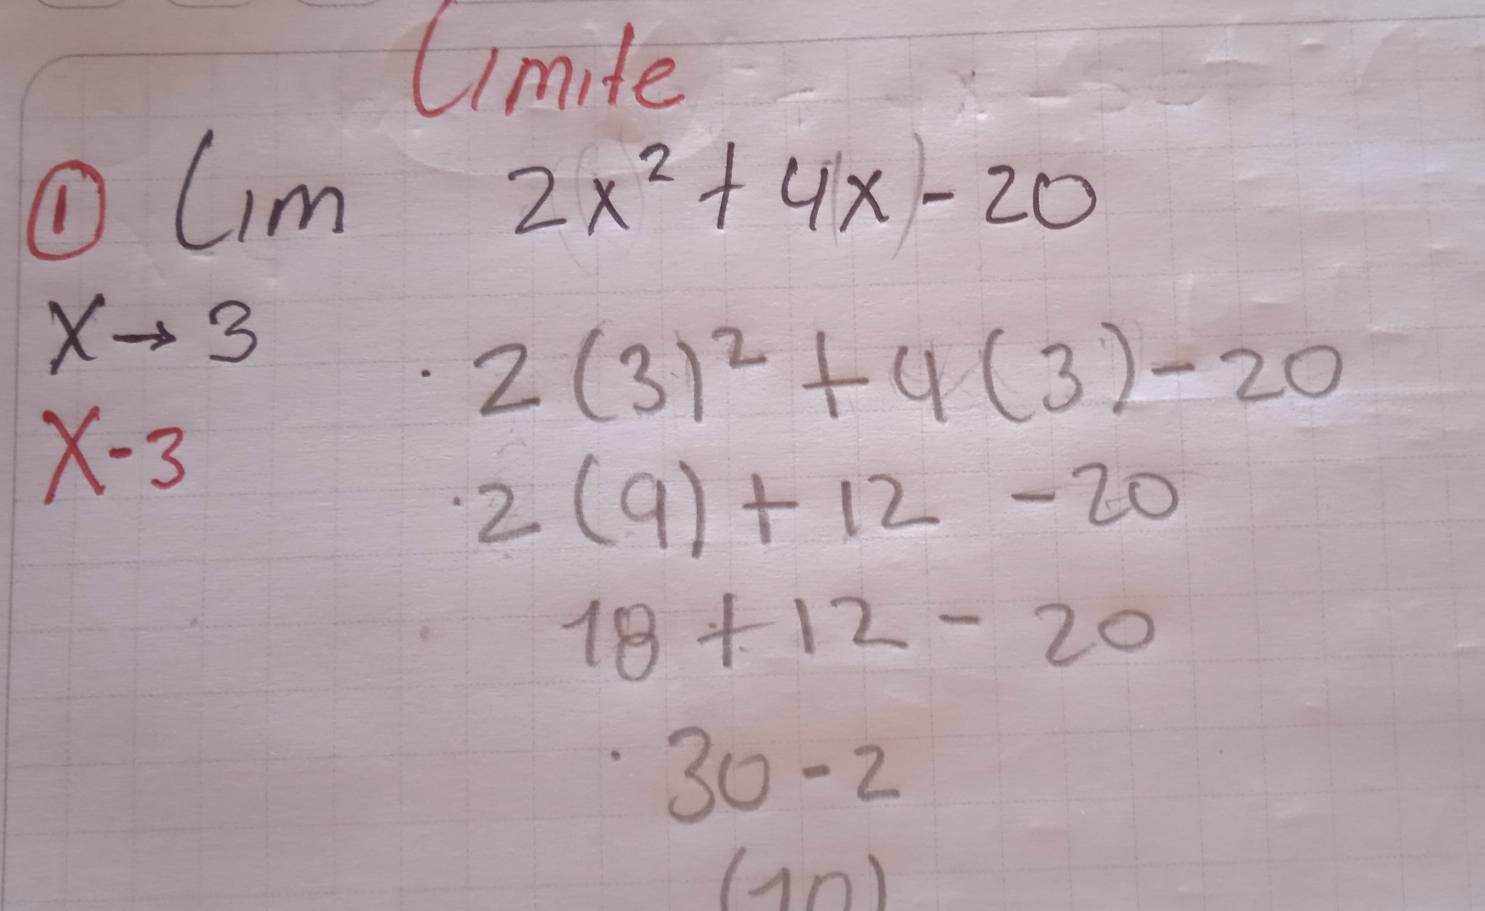 Limite
① Lim 2x² + 4x - 20
x → 3
x - 3
· 2 (3)² + 4 (3) - 20
· 2 (9) + 12 - 20
18 + 12 - 20
· 30 - 2
(10)